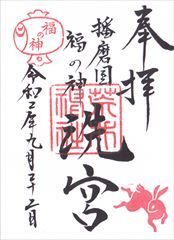 奉拝
播磨国
福の神
洗宮
福の神
令和二年九月二十二日